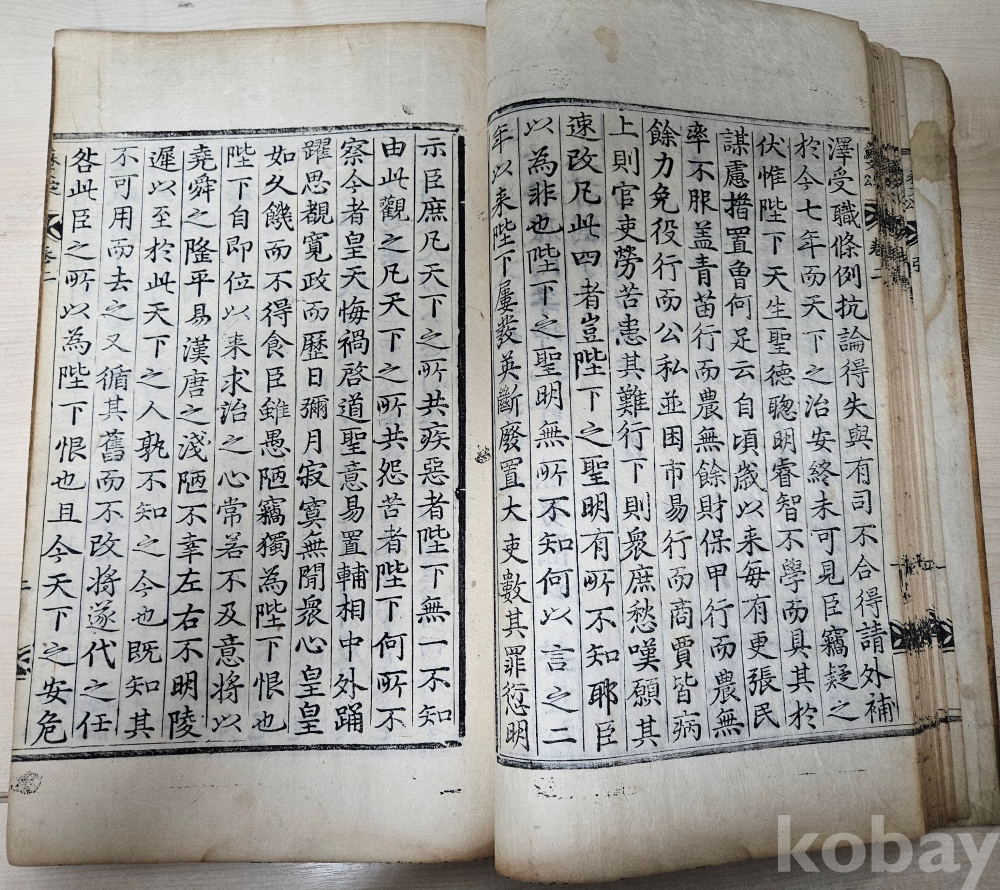 澤受職條例抗論得失與有司不合得請外補
於今七年而天下之治安終未可見臣竊疑之
伏惟陛下天生聖德聰明睿智不學而具其於
謀慮措置魯何足云自頃歲以来每有更張民
率不服盖青苗行而農無餘財保甲行而農無
餘力免役行而公私並困市易行而商賈皆病
上則官吏勞苦患其難行下則衆庶愁嘆願其
速改凡此四者豈陛下之聖明有所不知耶臣
以為非也陛下之聖明無所不知何以言之二
年以来陛下屢發英斷廢置大吏數其罪愆明
示臣庶凡天下之所共疾惡者陛下無一不知
由此觀之凡天下之所共怨苦者陛下何所不
察今者皇天悔禍啓道聖意易置輔相中外踊
躍思覩寬政而歷日彌月寂寞無聞衆心皇皇
如久饑而不得食臣雖愚陋竊獨為陛下恨也
陛下自即位以来求治之心常若不及意將以
堯舜之隆平易漢唐之淺陋不幸左右不明陵
遲以至於此天下之人孰不知之今也既知其
不可用而去之又循其舊而不改將遂代之任
咎此臣之所以為陛下恨也且今天下之安危
卷二
卷二
kobay